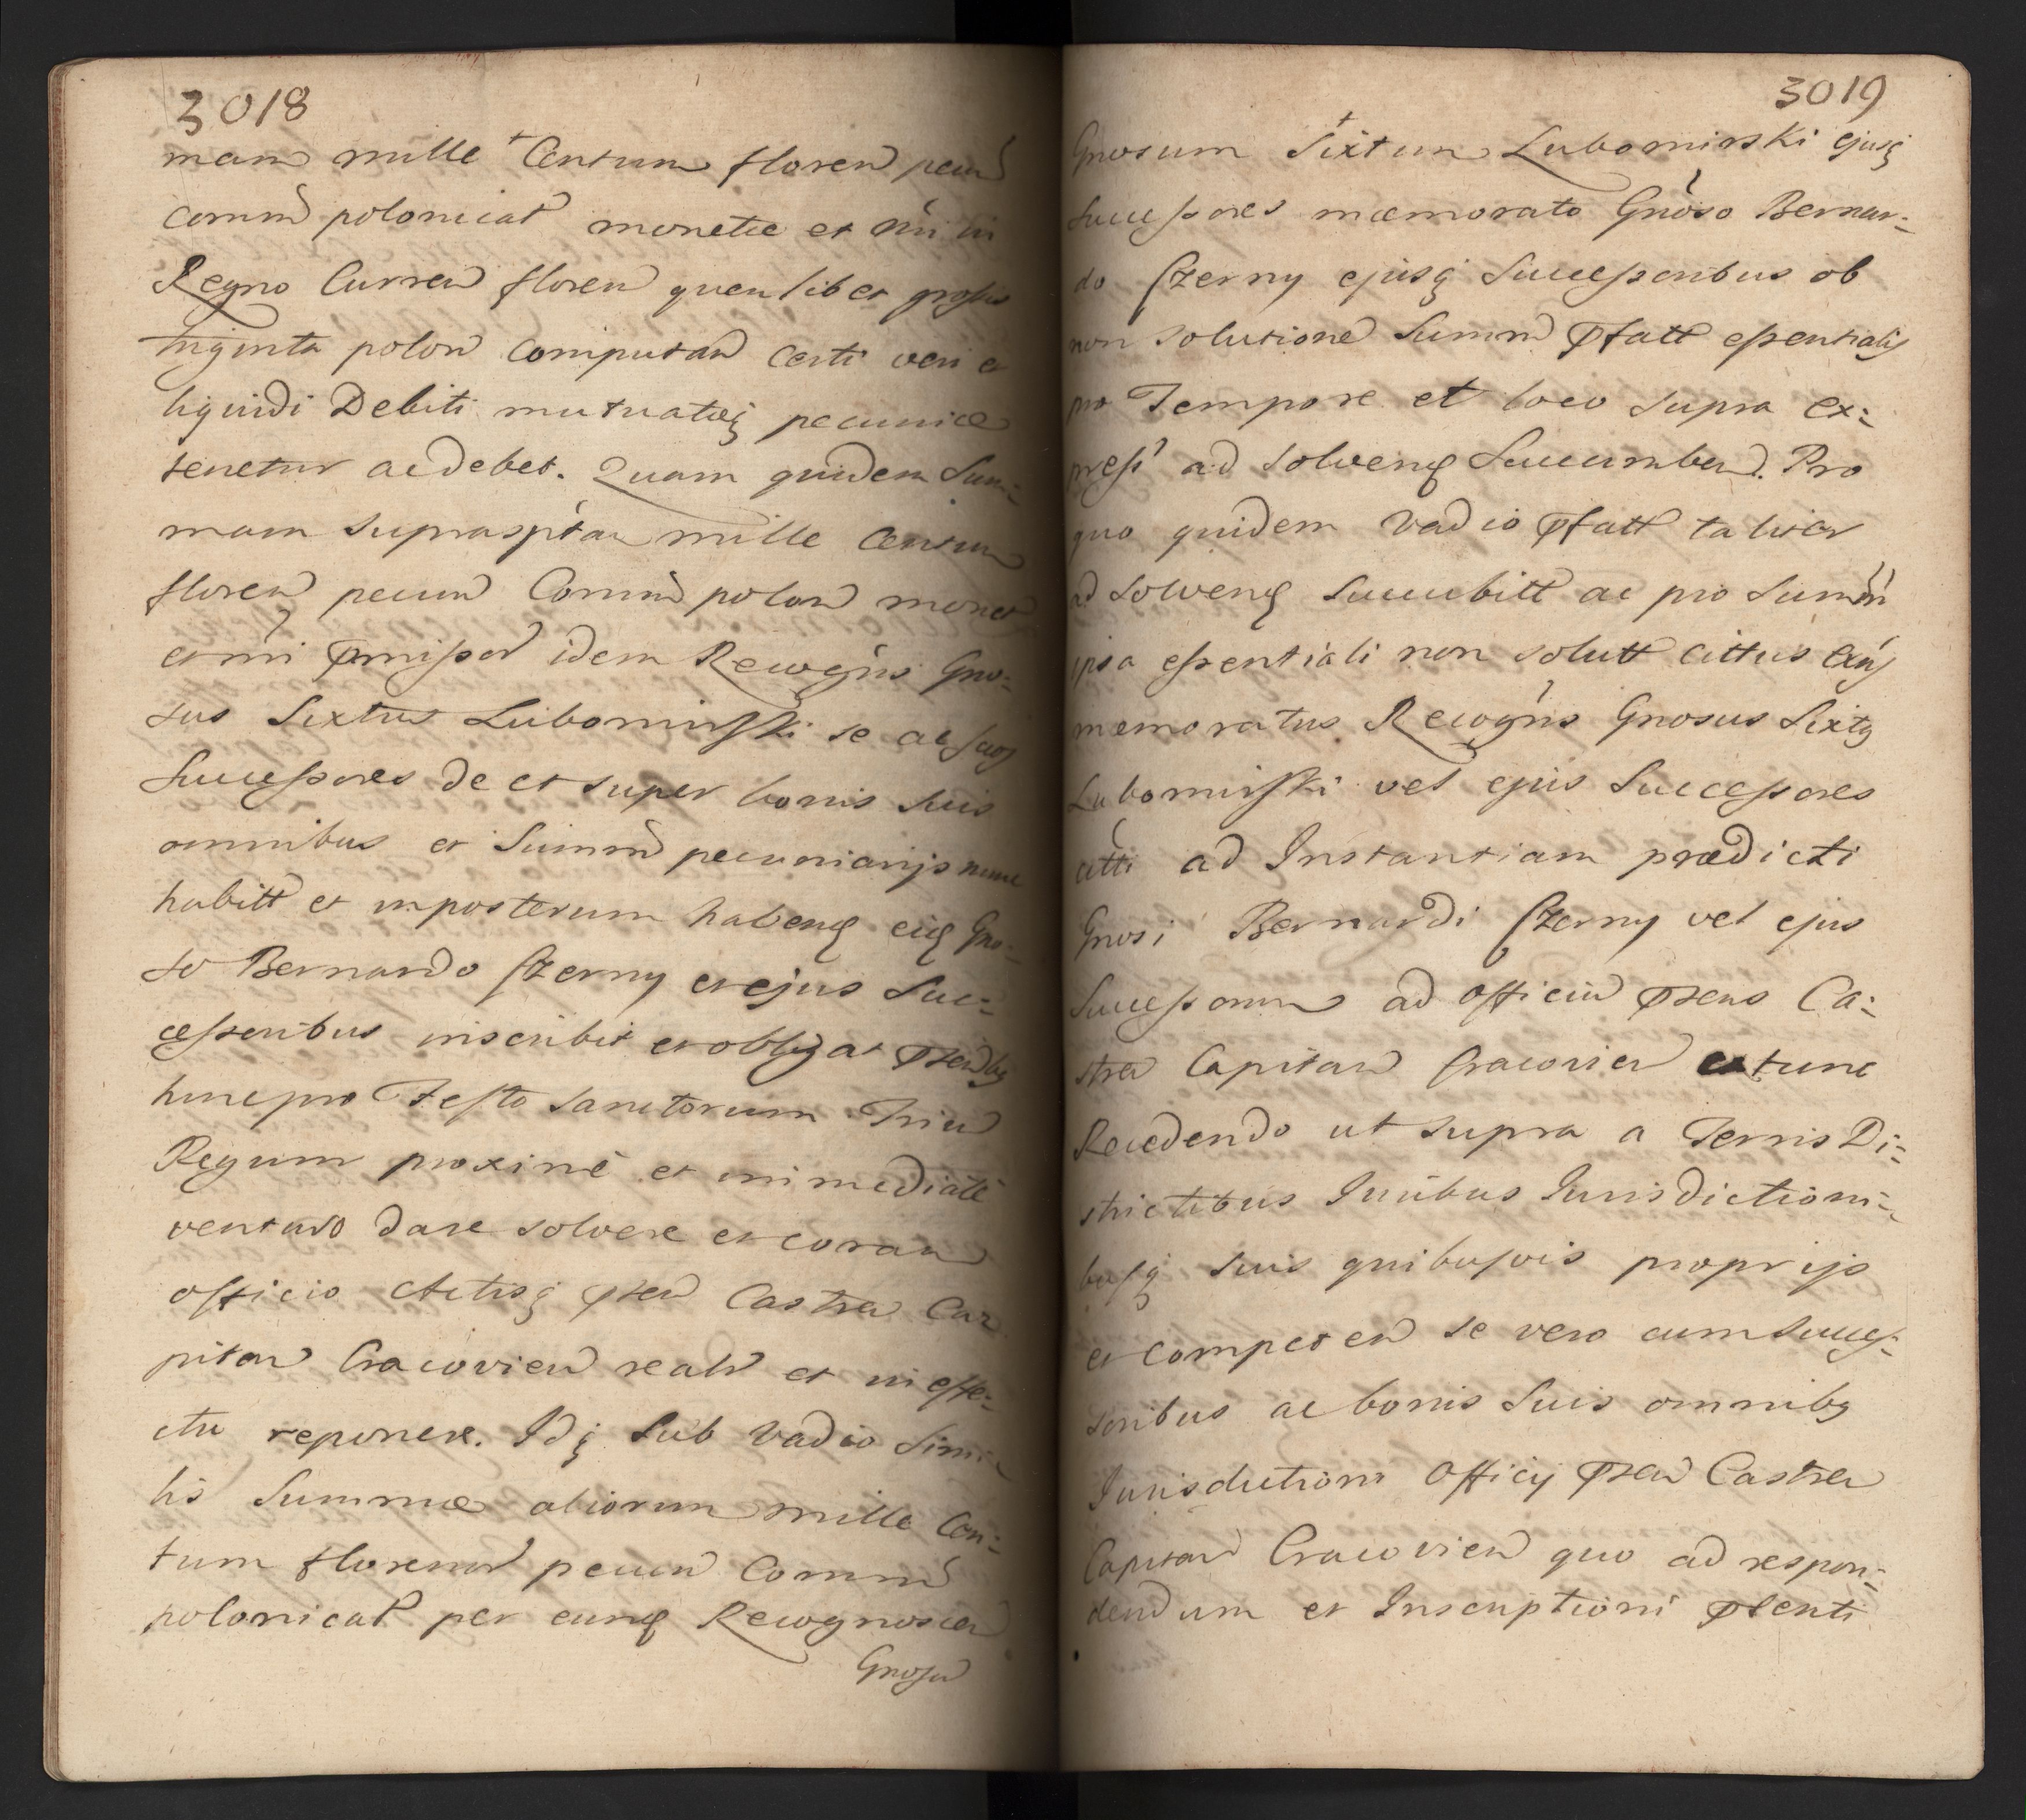 3018
mam mille Centum floren pecun
comm polonicat monetæ et nri in
Regno Curren floren quenlibet grossis
triginta polon computan certi veri et
liquidi Debiti mutuatæq pecuniæ
tenetur ac debet. Quam quidem Sum:
mam supraspttam mille Centum
floren pecun Comm polon monet
et nri pmissor idem Recogns Gno:
sus Sixtus Lubomirski se ac suos
Successores de et super bonis suis
omnibus et Summ pecuniarijs nunc
habitt et inposterum habend eid Gno:
so Bernardo Czerny et ejus Suc:
cessoribus inscribit et obligat psentibg
hinc pro Festo sanctorum Triu
Regum proximè et immediatè
venturo dare solvere et coram
officio Actisq psen Castren Ca:
pitan Cracovien realr et in effe:
ctu reponere. Idq sub vadio simi:
lis Summæ aliorum mille Cen:
tum florenor pecun Comm
polonicat per eund Recognoscen
Gnosu
3019
Gnosum Sixtum Lubomirski ejusq
Successores memorato Gnoso Bernar:
do Czerny ejusq Successoribus ob
non solutione Summ pfatt essentialis
pro Tempore et loco supra ex:
press ad solvend Succumben. Pro
quo quidem vadio pfatt taliter
ad solvend Succubitt ac pro Summ
ipsa essentiali non solutt cittus exns
memoratus Recogns Gnosus Sixtg
Lubomirski vel ejus Successores
citti ad Instantiam prædicti
Gnosi Bernardi Czerny vel ejus
Successorum ad officiu psens Ca:
stren Capitan Cracovien extunc
Recedendo ut supra a Terris Di:
strictibus Juribus Jurisdictioni:
busq suis quibusvis proprijs
et competen se vero cum succes:
soribus ac bonis suis omnibg
Jurisdictioni Officij psen Castren
Capitan Cracovien quo ad respon:
dendum et Inscriptioni psenti